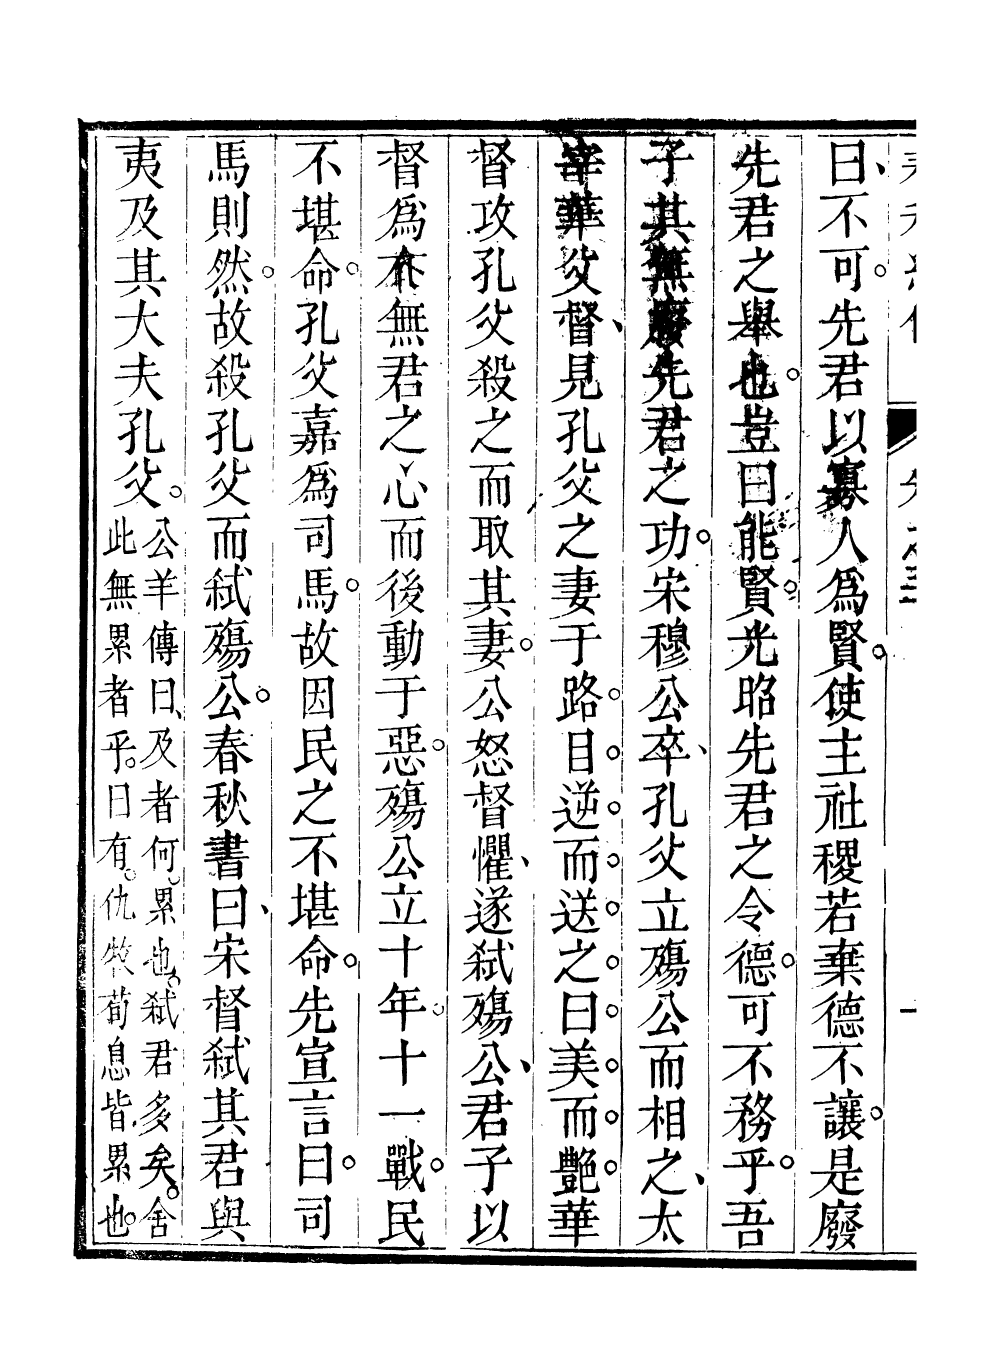 曰、不可。先君以寡人爲賢。使主社稷若棄德不讓。是廢
先君之舉也。豈曰能賢。光昭先君之令德。可不務乎。吾
子其無廢先君之功。宋穆公卒、孔父立殤公而相之、太
宰華父督、見孔父之妻于路。目逆而送之曰美而艷。華
督攻孔父殺之而取其妻。公怒督懼、遂弑殤公、君子以
督爲有無君之心而後動于惡。殤公立十年。十一戰。民
不堪命。孔父嘉爲司馬。故因民之不堪命。先宣言曰。司
馬則然。故殺孔父而弑殤公。春秋書曰、宋督弑其君與
夷及其大夫孔父。公羊傳曰、及者何。累也。弑君多矣。舍
此無累者乎。曰有。仇牧荀息皆累也。